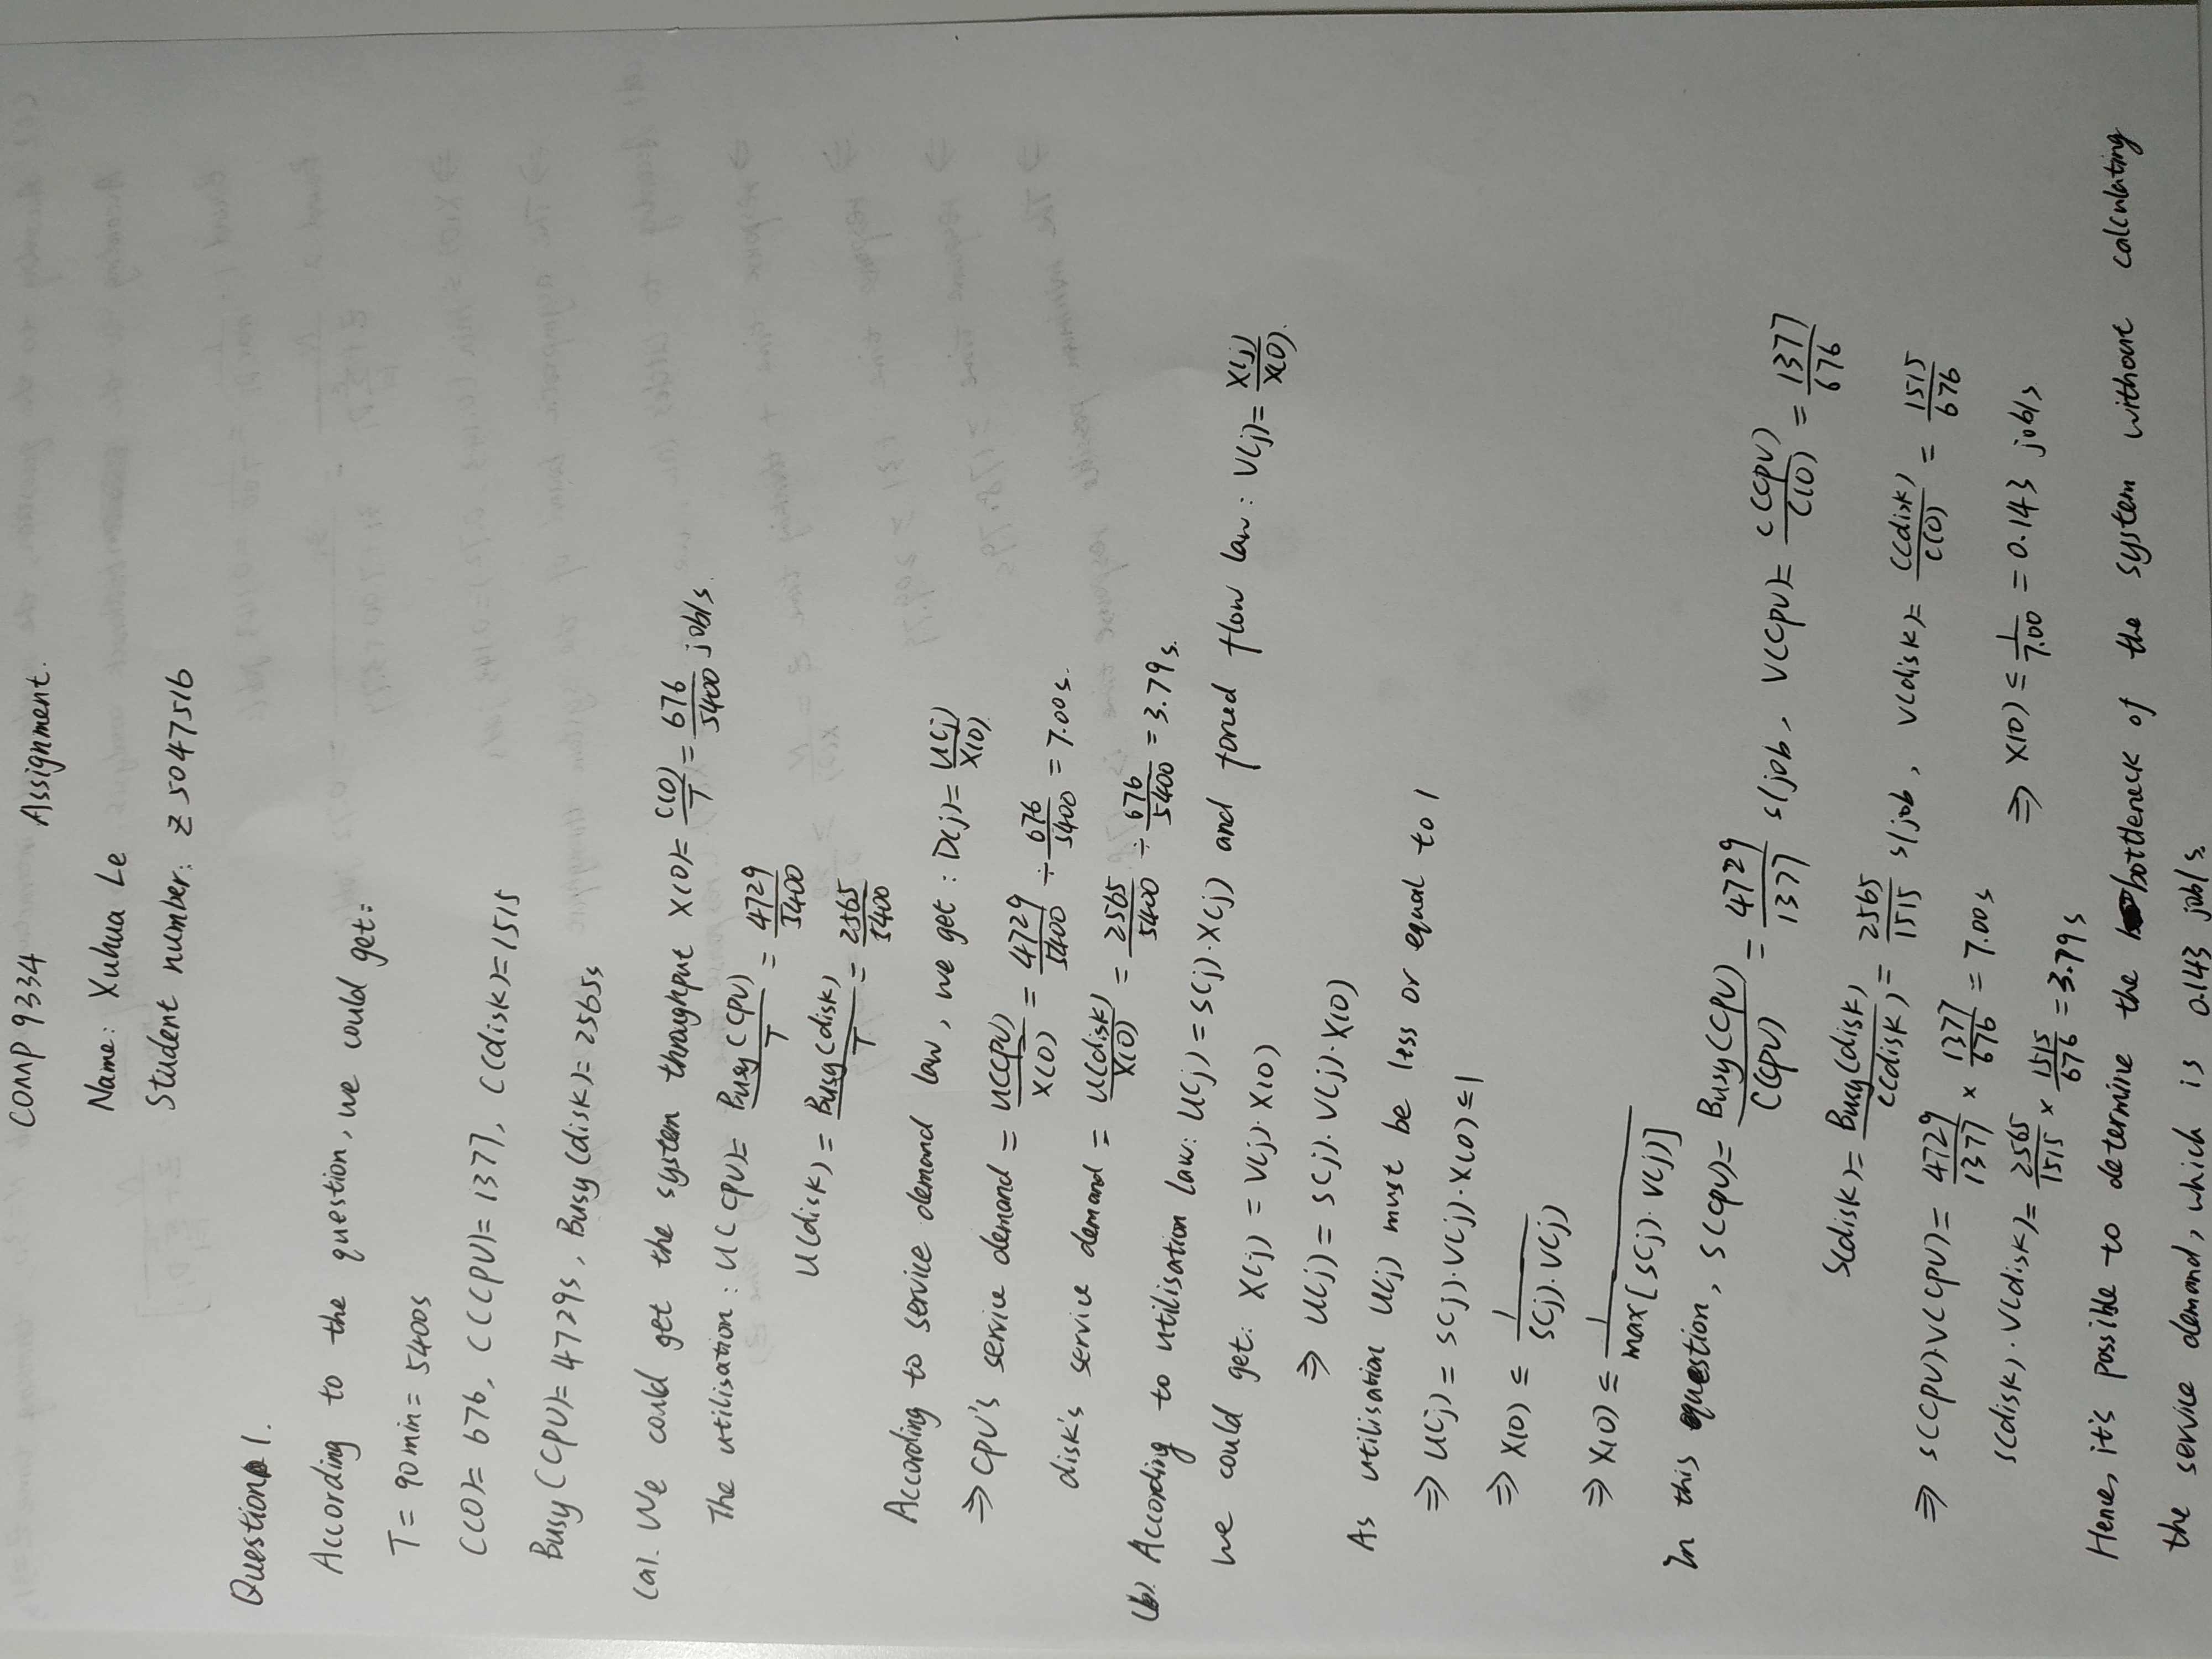 COMP 9334 Assignment.
Name: Xuhua Le
Student number: z5047516
Question 1.
According to the question, we could get:
T = 90min = 5400s
C(0) = 676, C(CPU) = 1377, C(disk) = 1515
Busy(CPU) = 4729s, Busy(disk) = 2565s
(a). We could get the system throughput X(0) = C(0)/T = 676/5400 job/s.
The utilisation: U(CPU) = Busy(CPU)/T = 4729/5400
U(disk) = Busy(disk)/T = 2565/5400
According to service demand law, we get: D(j) = U(j)/X(0)
⇒ CPU's service demand = U(CPU)/X(0) = 4729/5400 ÷ 676/5400 = 7.00s.
disk's service demand = U(disk)/X(0) = 2565/5400 ÷ 676/5400 = 3.79s.
(b). According to utilisation law: U(j) = S(j)·X(j) and forced flow law: V(j) = X(j)/X(0).
We could get: X(j) = V(j)·X(0)
⇒ U(j) = S(j)·V(j)·X(0)
As utilisation U(j) must be less or equal to 1
⇒ U(j) = S(j)·V(j)·X(0) ≤ 1
⇒ X(0) ≤ 1/S(j)·V(j)
⇒ X(0) ≤ 1/max[S(j)·V(j)]
In this question, S(CPU) = Busy(CPU)/C(CPU) = 4729/1377 s/job, V(CPU) = C(CPU)/C(0) = 1377/676
S(disk) = Busy(disk)/C(disk) = 2565/1515 s/job, V(disk) = C(disk)/C(0) = 1515/676
⇒ S(CPU)·V(CPU) = 4729/1377 × 1377/676 = 7.00s
S(disk)·V(disk) = 2565/1515 × 1515/676 = 3.79s
⇒ X(0) ≤ 1/7.00 = 0.143 job/s
Hence, it's possible to determine the bottleneck of the system without calculating
the service demand, which is 0.143 job/s.